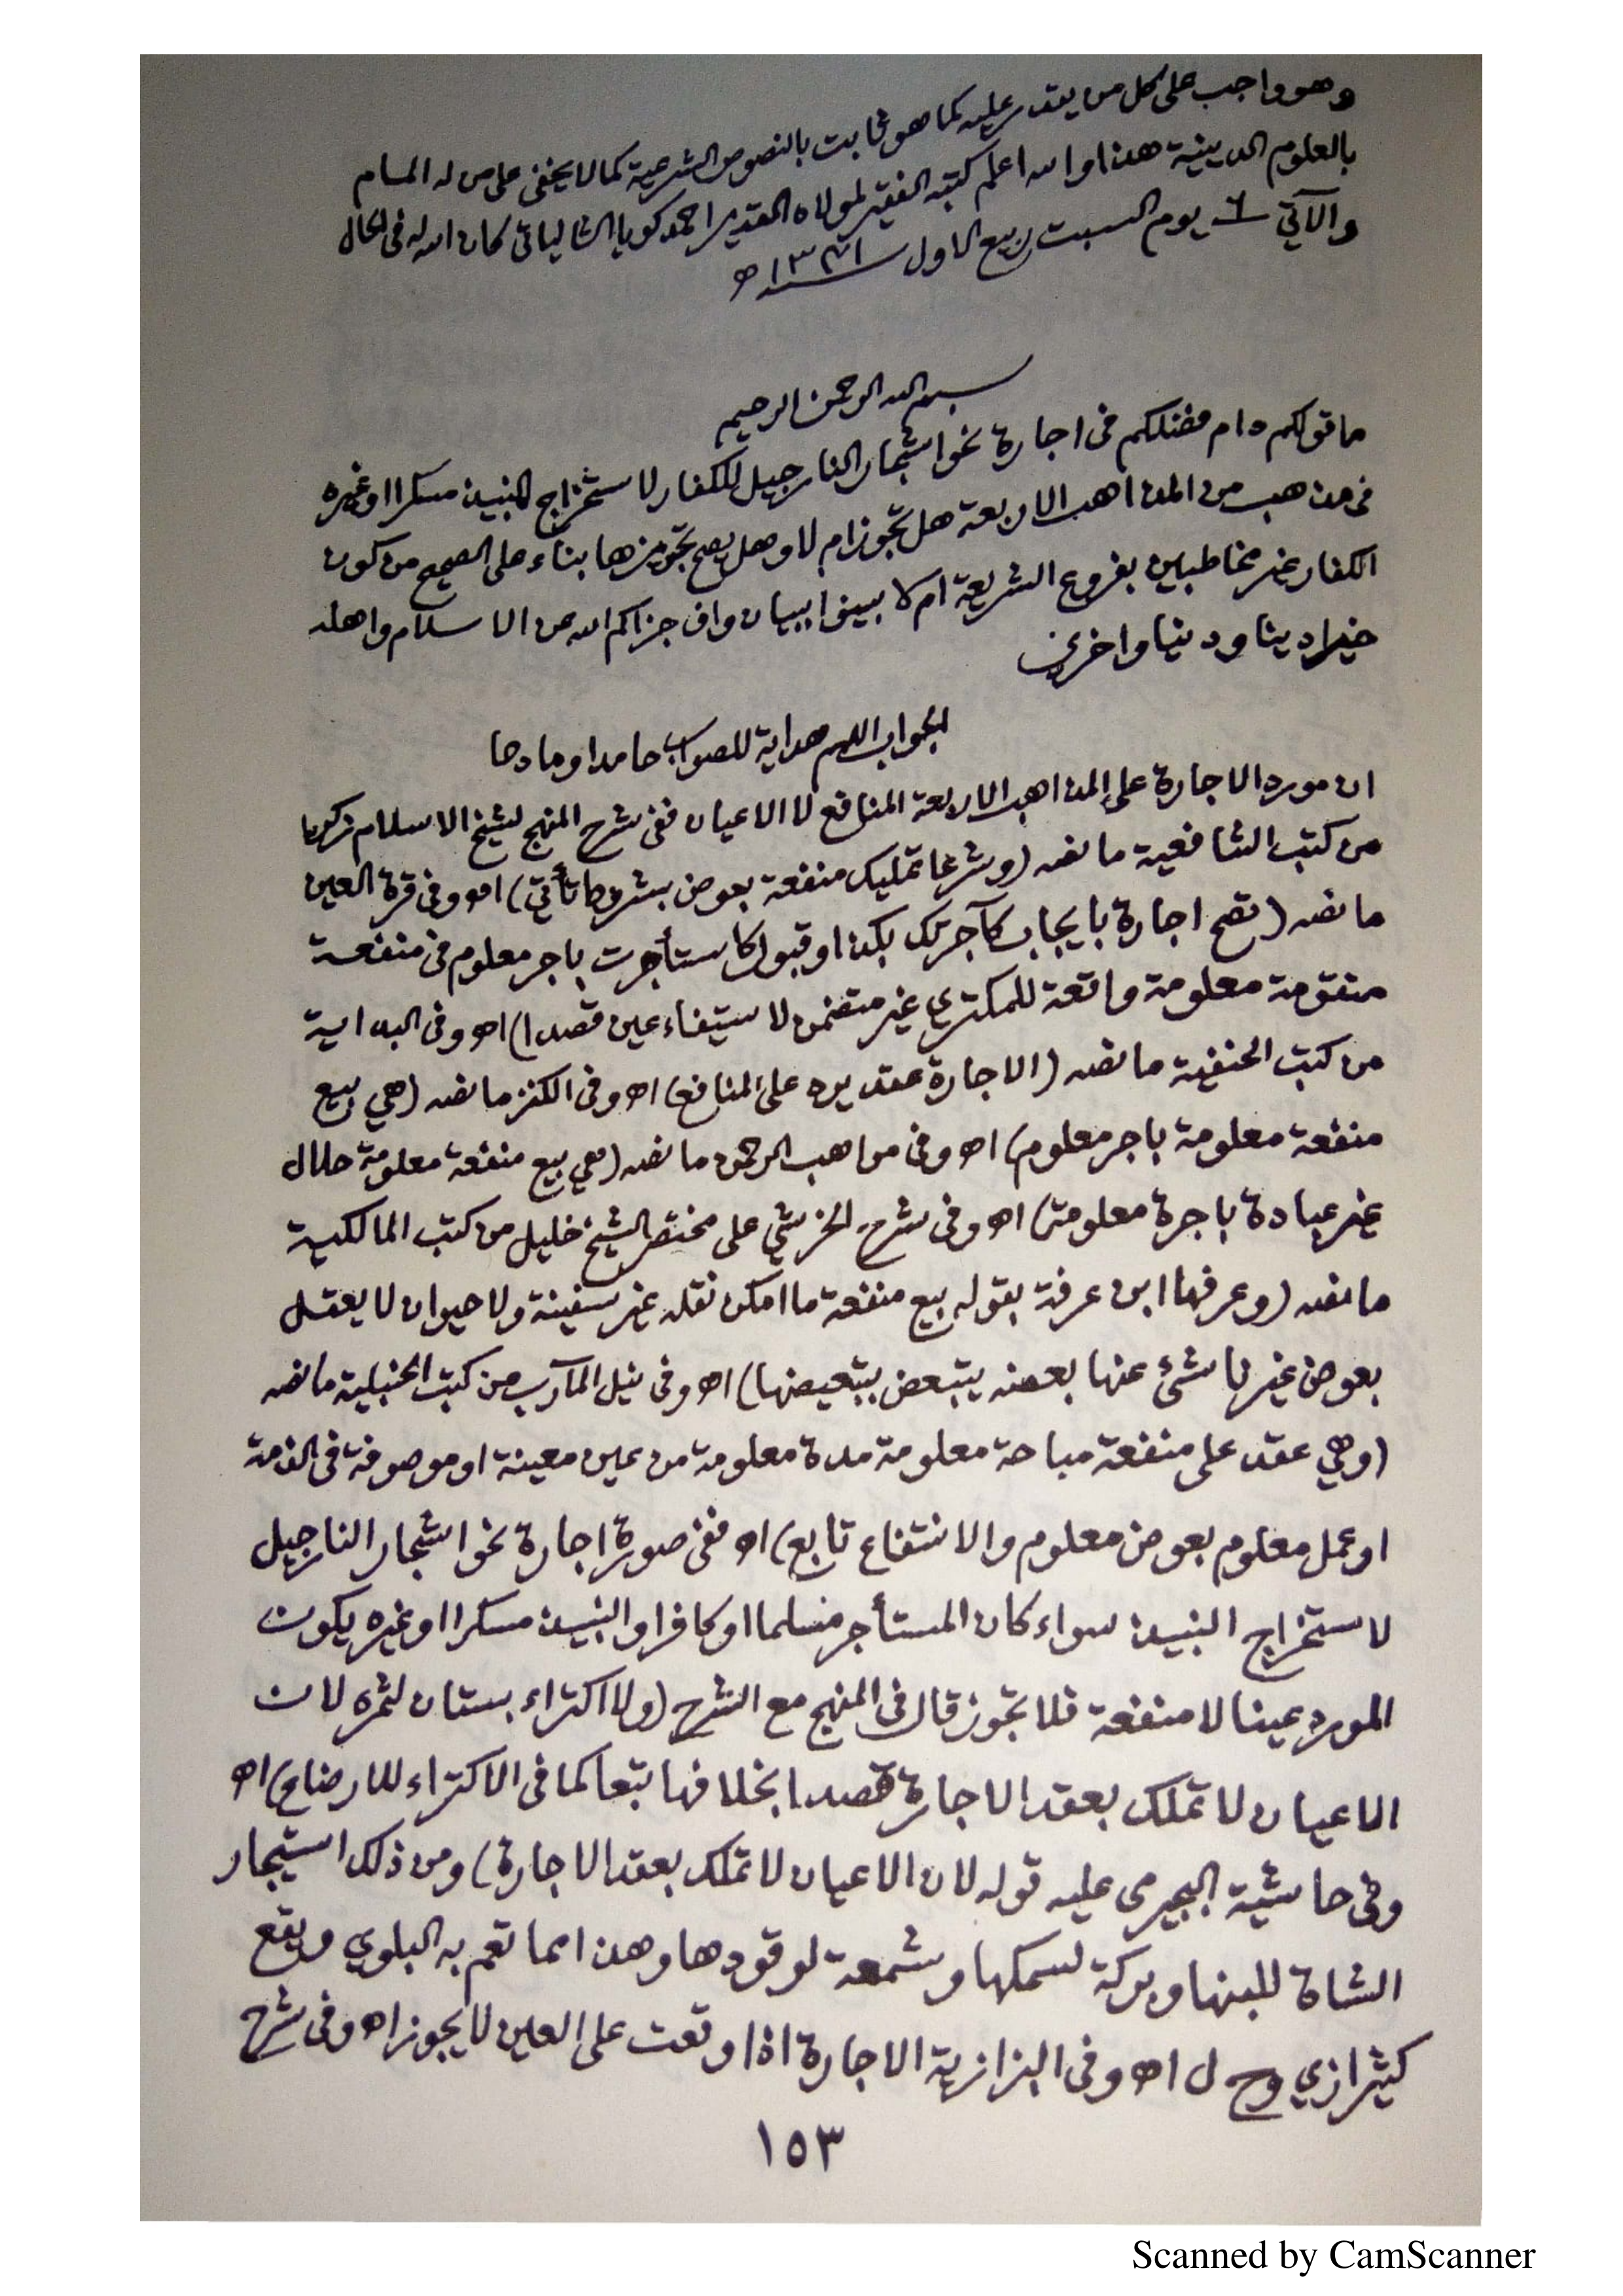 وهو واجب على كل من يقدر عليه كما هو ثابت بالنصوص الشرعية كما لا يخفى على من له المام
بالعلوم الدينية هذا والله اعلم كتبه الفقير لمولاه القدير احمد كويا الشالياتي كان الله له في الحال
والآتي ٦ يوم السبت ربيع الاول سنة ١٣٧١ه
بسم الله الرحمن الرحيم
ما قولكم دام فضلكم في اجارة نحو اشجار النارجيل للكفار لاستخراج النبيذ مسكرا او غيره
في مذهب من المذاهب الاربعة هل تجوز ام لا وهل يصح تجويزها بناء على الصحيح من كون
الكفار غير مخاطبين بفروع الشريعة ام لا بينوا ببيان واف جزاكم الله عن الاسلام واهله
خيرا دينا ودنيا واخرى
الجواب اللهم هداية للصواب حامدا ومادحا
ان مورد الاجارة على المذاهب الاربعة المنافع لا الاعيان ففي شرح المنهج لشيخ الاسلام زكريا
من كتب الشافعية ما نصه (وشرعا تمليك منفعة بعوض بشروط تأتي) اه وفي قرة العين
ما نصه (تصح اجارة بايجاب كآجرتك بكذا وقبول كاستأجرت باجر معلوم في منفعة
متقومة معلومة واقعة للمكتري غير متضمن لاستيفاء عين قصدا) اه وفي البداية
من كتب الحنفية ما نصه (الاجارة عقد يرد على المنافع) اه وفي الكنز ما نصه (هي بيع
منفعة معلومة باجر معلوم) اه وفي مواهب الرحمن ما نصه (هي بيع منفعة معلومة حلال
غير عبادة باجرة معلومة) اه وفي شرح الخرشي على مختصر الشيخ خليل من كتب المالكية
ما نصه (وعرفها ابن عرفة بقوله بيع منفعة ما امكن نقله غير سفينة ولا حيوان لا يعقل
بعوض غير ناشئ عنها بعضه يتبعض بتبعيضها) اه وفي نيل المآرب من كتب الحنبلية ما نصه
(وهي عقد على منفعة مباحة معلومة مدة معلومة من عين معينة او موصوفة في الذمة
او عمل معلوم بعوض معلوم والانتفاع تابع) اه ففي صورة اجارة نحو اشجار النارجيل
لاستخراج النبيذ سواء كان المستأجر مسلما او كافرا والنبيذ مسكرا او غيره يكون
المورد عينا لا منفعة فلا تجوز قال في المنهج مع الشرح (ولا اكتراء بستان لثمره لان
الاعيان لا تملك بعقد الاجارة قصدا بخلافها تبعا كما في الاكتراء للارضاع) اه
وفي حاشية البجيرمي عليه قوله لان الاعيان لا تملك بعقد الاجارة) ومن ذلك استيجار
الشاة للبنها وبركة لسمكها وشمعة لوقودها وهذا مما تعم به البلوي ويقع
كثيرا زي وح ل اه وفي البزازية الاجارة اذا وقعت على العين لا يجوز اه وفي شرح
١٥٣
Scanned by CamScanner